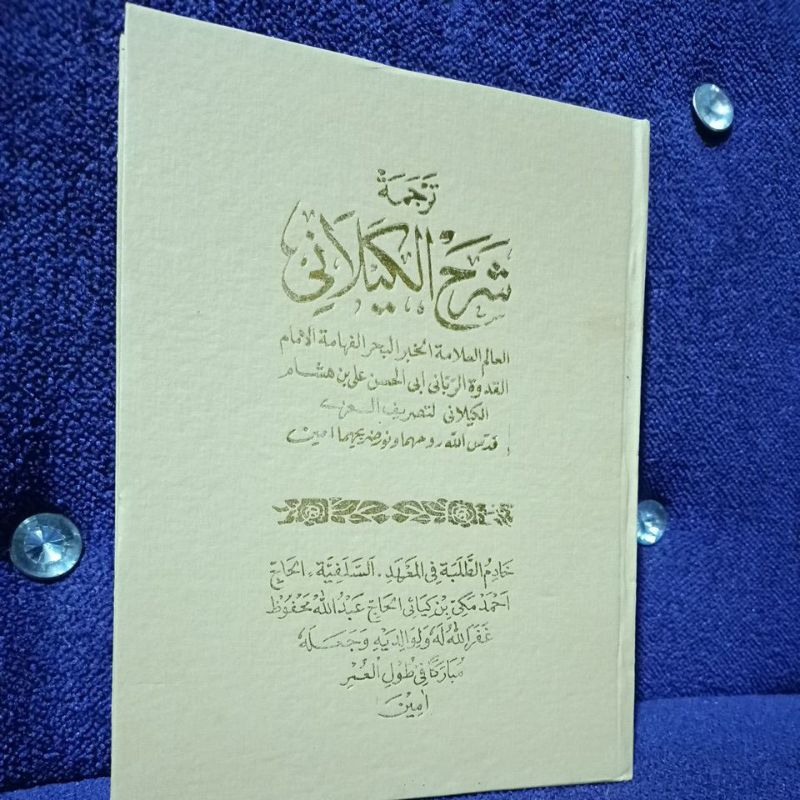 تَرْجَمَةْ
شَرْحُ الْكَيْلَانِيْ
العالم العلامة الحبر البحر الفهامة الامام
القدوة الربانى ابى الحسن على بن هشام
الكيلانى لتصريف العزى
قدس الله روحهما ونور ضريحهما امين
خَادِمُ الطَّلَبَةِ فِى الْمَعْهَدِ . اَلسَّلَفِيَّةِ . الحَاجّ
اَحْمَدْ مَكِّىْ بْنِ كِيَائِى الحَاجّ عَبْدُ اللهْ مَحْفُوظْ
غَفَرَ اللهُ لَهُ وَلِوَالِدَيْهِ وَجَعَلَهُ
مُبَارَكًا فِىْ طُوْلِ الْعُمْرِ
اٰمِيْنَ